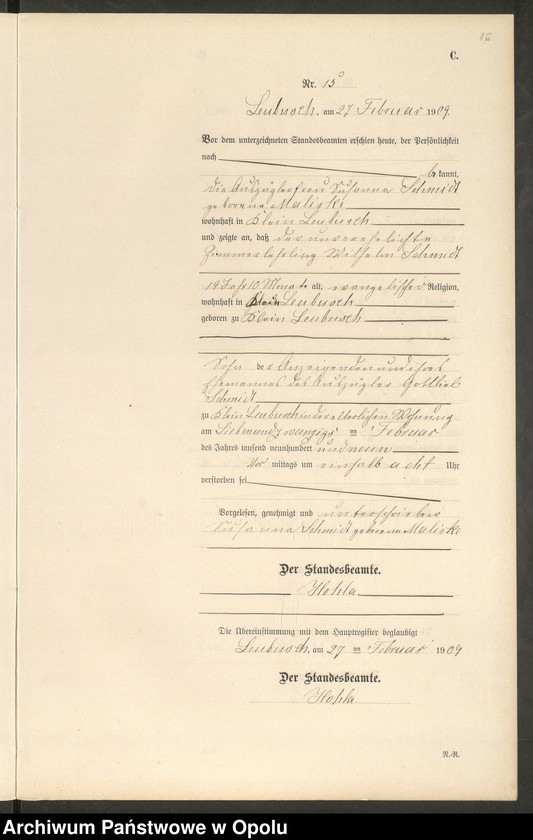 16
C.
Nr. 15
Leubusch, am 27 Februar 1909.
Vor dem unterzeichneten Standesbeamten erschien heute, der Persönlichkeit
nach
be kannt,
die Auszüglerfrau Susanna Schmidt
geborene Maliske
wohnhaft in Klein Leubusch
und zeigte an, daß der unverehelichte
Zimmerlehrling Wilhelm Schmidt
19 Jahr 10 Monate alt, evangelischer Religion,
wohnhaft in Klein Leubusch
geboren zu Klein Leubusch
Sohn der Anzeigenden und ihres
Ehemannes des Auszügler Gottlieb
Schmidt
zu Klein Leubusch in der elterlichen Wohnung
am Siebenundzwanzigs ten Februar
des Jahres tausend neunhundert und neun
Vor mittags um einhalb acht Uhr
verstorben sei
Vorgelesen, genehmigt und unterschrieben
Susanna Schmidt geborene Maliske
Der Standesbeamte.
Hohla
Die Übereinstimmung mit dem Hauptregister beglaubigt
Leubusch, am 27 ten Februar 1909
Der Standesbeamte.
Hohla
N.-R.
Archiwum Państwowe w Opolu